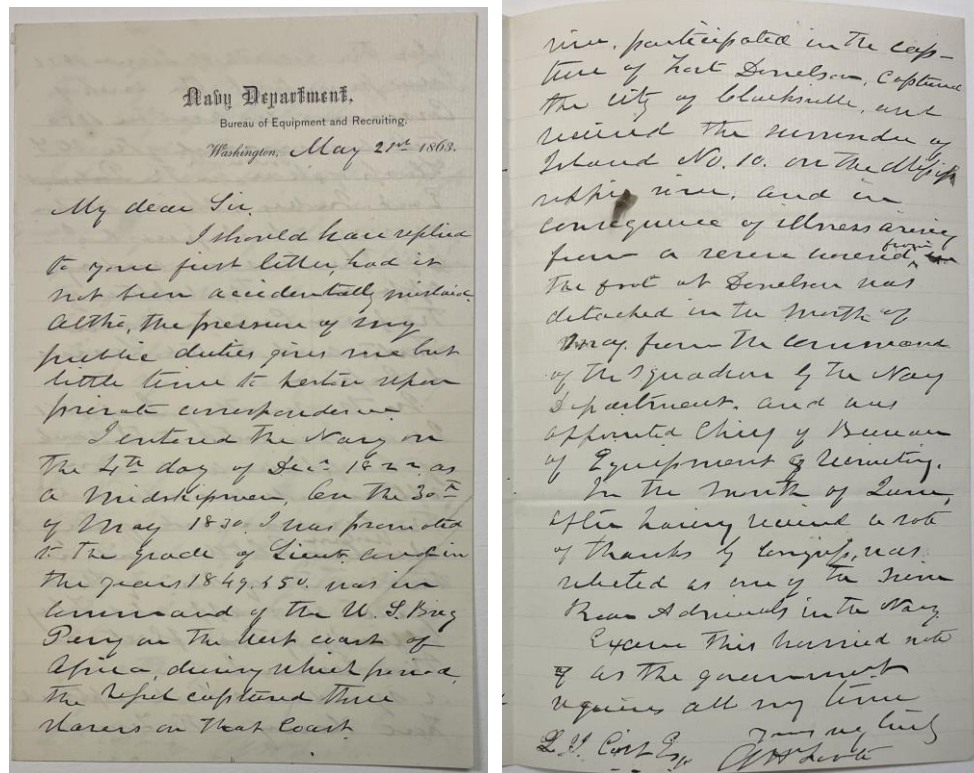 Navy Department,
Bureau of Equipment and Recruiting.
Washington, May 21st 1863.
My dear Sir.
I should have replied
to your first letter, had it
not been accidentally mislaid.
Altho, the pressure of my
public duties gives me but
little time to bestow upon
private correspondence
I entered the Navy on
the 4th day of Decr. 1822 as
a Midshipman, On the 30th
of May 1830 I was promoted
to the grade of Lieut. and in
the years 1849, & 50. was in
command of the U. S. Brig
Perry on the West coast of
Africa, during which period,
the Vessel captured three
slavers on that Coast
river, participated in the cap-
ture of Fort Donelson, captured
the city of Clarksville, and
received the surrender of
Island No. 10. on the Missis
sippi river, and in
consequence of illness arising
from a severe wound, from
the foot at Donelson was
detached in the month of
May from the command
of the Squadron by the Navy
Department. and was
appointed Chief of Bureau
of Equipment & Recruiting.
In the month of June,
after having received a vote
of thanks by Congress, was
selected as one of the nine
Rear Admirals in the Navy
Excuse this hurried note
as the government
requires all my time
Yours very truly
Esq. AH Foote